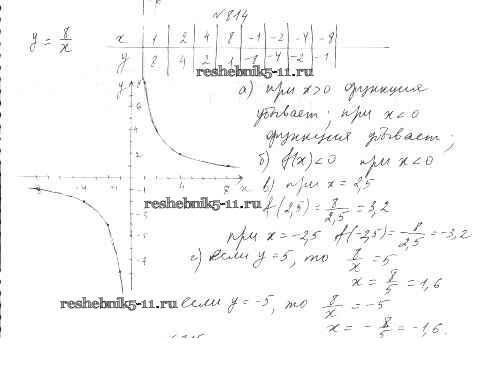 № 814
y = 8/x
x 1 2 4 8 -1 -2 -4 -8
y 8 4 2 1 -8 -4 -2 -1
reshebnik5-11.ru
а) при x>0 функция
убывает; при x<0
функция убывает;
б) f(x)<0 при x<0
в) при x = 2,5
reshebnik5-11.ru
f(2,5) = 8/2,5 = 3,2
при x = -2,5 f(-2,5) = -8/2,5 = -3,2
г) если y = 5, то 8/x = 5
x = 8/5 = 1,6
reshebnik5-11.ru
если y = -5, то 8/x = -5
x = -8/5 = -1,6.